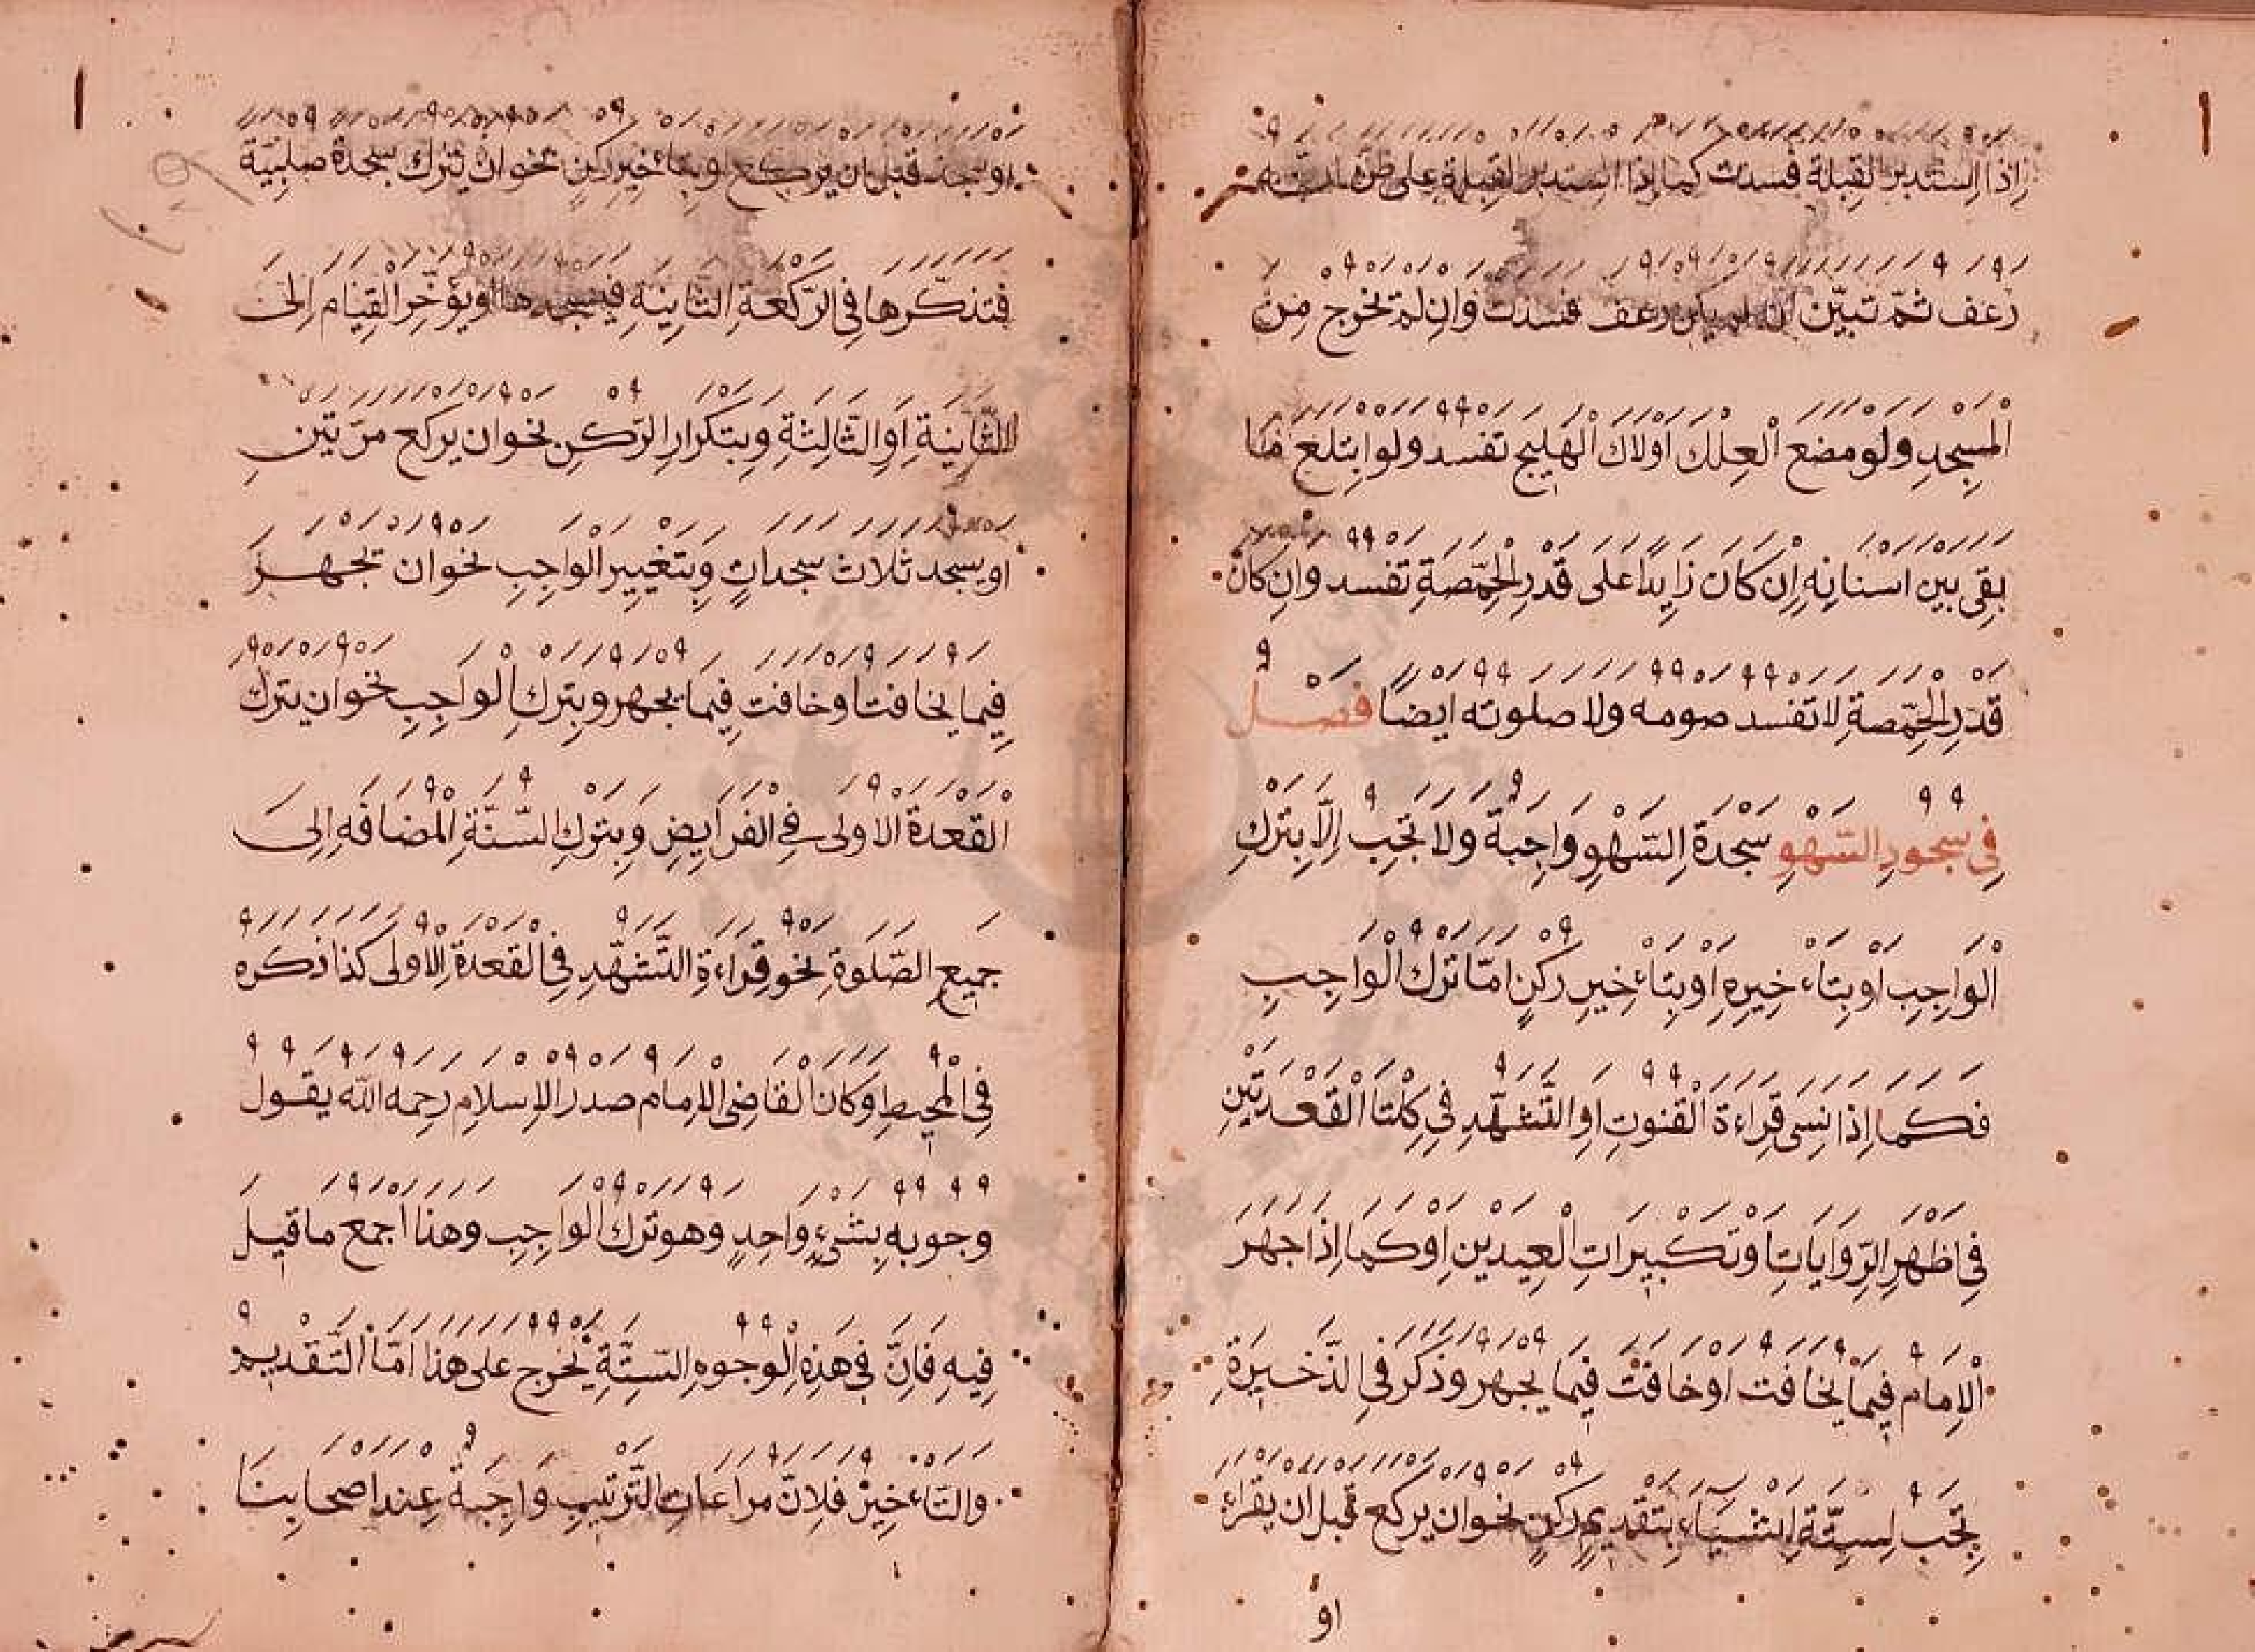 اذا استدبر القبلة فسدت كما اذا استدبر القبلة على ظنّ
رعف ثمّ تبيّن انه لم يكن رعف فسدت وان لم تخرج من
المسجد ولو مضغ العلك او لاك الهليج تفسد ولو ابتلع ما
بقى بين اسنانه ان كان زايدا على قدر الحمّصة تفسد وان كان
قدر الحمّصة لا تفسد صومه ولا صلوته ايضا فصل
فى سجود السّهو سجدة السّهو واجبة ولا تجب الّا بترك
الواجب او بتاءخيره او بتاءخير ركن امّا ترك الواجب
فكما اذا نسى قراءة القنوت او التّشهّد فى كلتا القعدتين
فى اظهر الرّوايات او تكبيرات العيدين او كما اذا جهر
الامام فيما يخافت او خافت فيما يجهر وذكر فى الذّخيرة
تجب لستّة اشياء بتقديم ركن نحو ان يركع قبل ان يقراء
او
او يسجد قبل ان يركع وبتاءخير ركن نحو ان يترك سجدة صلبيّة
فتذكّرها فى الرّكعة الثّانية فيسجدها او يؤخّر القيام الى
الثّانية او الثّالثة وبتكرار الرّكن نحو ان يركع مرّتين
او يسجد ثلاث سجدات وبتغيير الواجب نحو ان تجهر
فيما يخافت او خافت فيما يجهر وبترك الواجب نحو ان يترك
القعدة الاولى فى الفرايض وبترك السّنّة المضافه الى
جميع الصّلوة نحو قراءة التّشهّد فى القعدة الاولى كذا ذكره
فى المحيط وكان القاضى الامام صدر الاسلام رحمه الله يقول
وجوبه بشىء واحد وهو ترك الواجب وهذا اجمع ما قيل
فيه فانّ فى هذه الوجوه السّتّة يخرج على هذا امّا التّقديم
والتّاءخير فلانّ مراعات التّرتيب واجبة عند اصحابنا